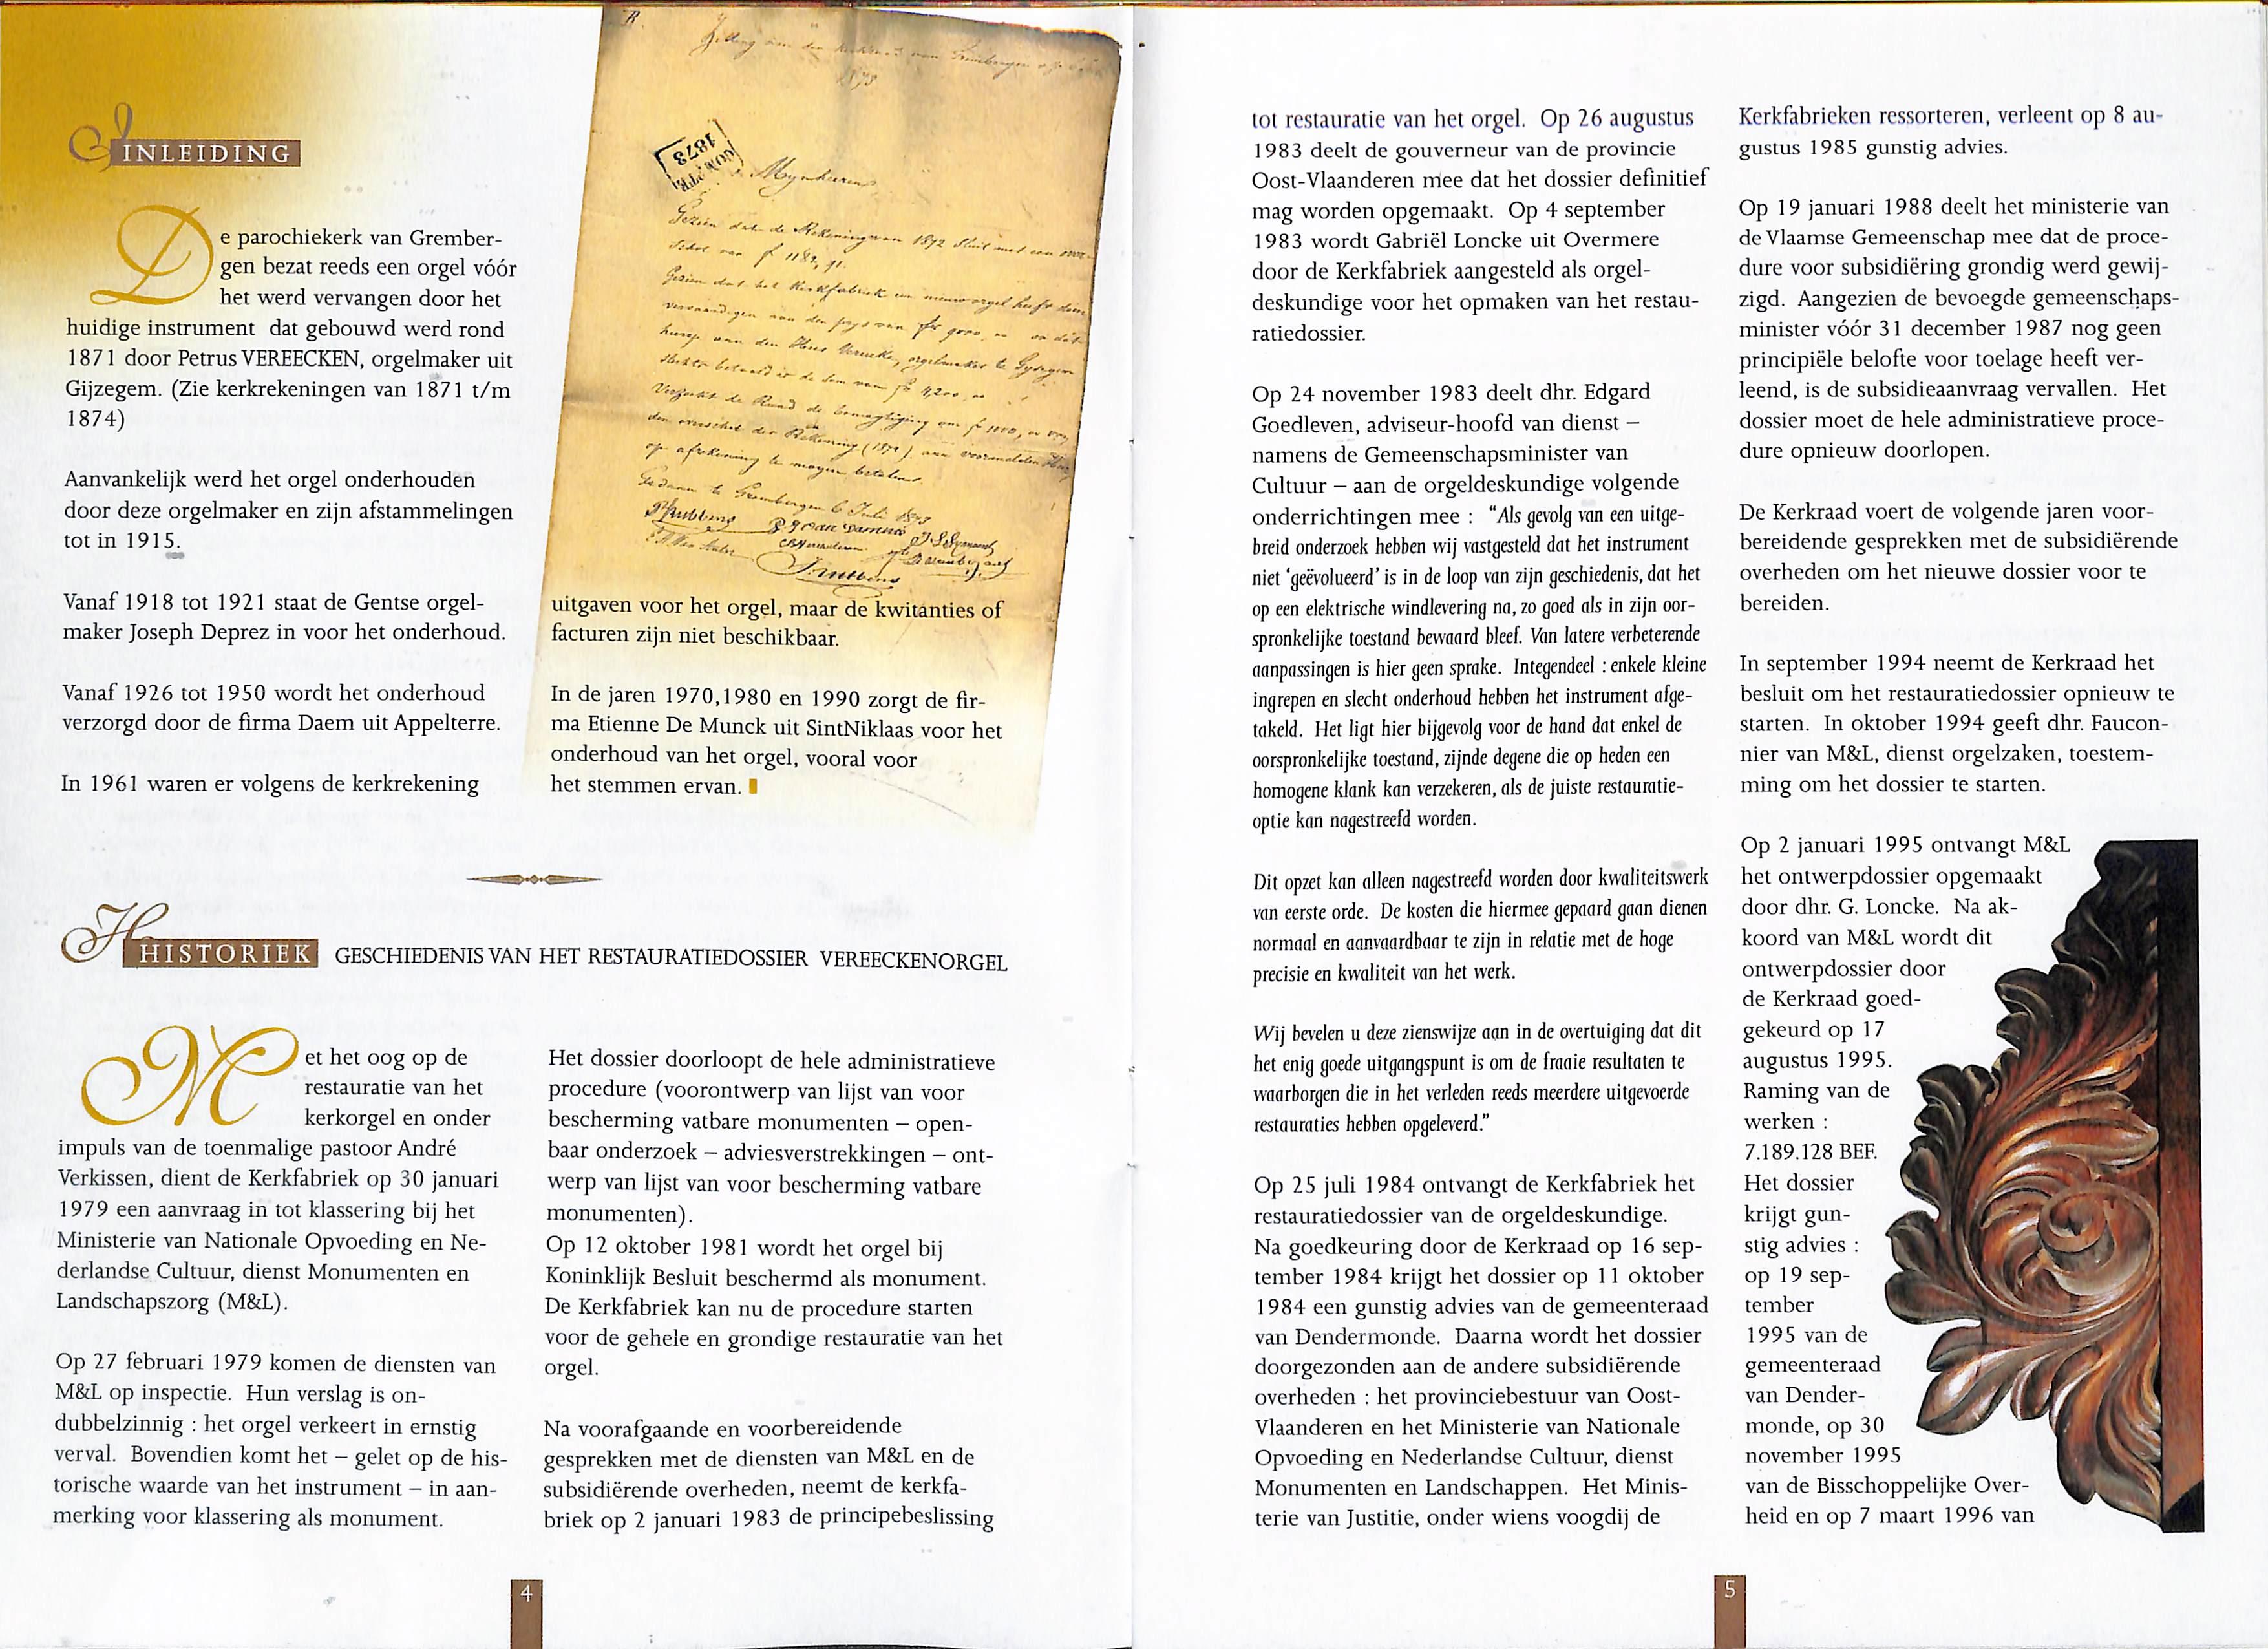 INLEIDING
De parochiekerk van Grember-
gen bezat reeds een orgel vóór
het werd vervangen door het
huidige instrument dat gebouwd werd rond
1871 door Petrus VEREECKEN, orgelmaker uit
Gijzegem. (Zie kerkrekeningen van 1871 t/m
1874)
Aanvankelijk werd het orgel onderhouden
door deze orgelmaker en zijn afstammelingen
tot in 1915.
Vanaf 1918 tot 1921 staat de Gentse orgel-
maker Joseph Deprez in voor het onderhoud.
Vanaf 1926 tot 1950 wordt het onderhoud
verzorgd door de firma Daem uit Appelterre.
In 1961 waren er volgens de kerkrekening
1873
Mynheeren
Gezien dat de Rekening van 1872 sluit met een
Gezien dat het Kerkfabriek een nieuw orgel heeft doen
vervaardigen aan den prys van fr 9000,
orgelmaker te Gyzegem
slechts betaald is de som van fr 4,200,
Verzoekt de Raad de
op afrekening te mogen betalen.
Gedaan te Grembergen 6 Juli 1873
uitgaven voor het orgel, maar de kwitanties of
facturen zijn niet beschikbaar.
In de jaren 1970,1980 en 1990 zorgt de fir-
ma Etienne De Munck uit SintNiklaas voor het
onderhoud van het orgel, vooral voor
het stemmen ervan.
HISTORIEK GESCHIEDENIS VAN HET RESTAURATIEDOSSIER VEREECKENORGEL
Met het oog op de
restauratie van het
kerkorgel en onder
impuls van de toenmalige pastoor André
Verkissen, dient de Kerkfabriek op 30 januari
1979 een aanvraag in tot klassering bij het
Ministerie van Nationale Opvoeding en Ne-
derlandse Cultuur, dienst Monumenten en
Landschapszorg (M&L).
Op 27 februari 1979 komen de diensten van
M&L op inspectie. Hun verslag is on-
dubbelzinnig : het orgel verkeert in ernstig
verval. Bovendien komt het – gelet op de his-
torische waarde van het instrument – in aan-
merking voor klassering als monument.
Het dossier doorloopt de hele administratieve
procedure (voorontwerp van lijst van voor
bescherming vatbare monumenten – open-
baar onderzoek – adviesverstrekkingen – ont-
werp van lijst van voor bescherming vatbare
monumenten).
Op 12 oktober 1981 wordt het orgel bij
Koninklijk Besluit beschermd als monument.
De Kerkfabriek kan nu de procedure starten
voor de gehele en grondige restauratie van het
orgel.
Na voorafgaande en voorbereidende
gesprekken met de diensten van M&L en de
subsidiërende overheden, neemt de kerkfa-
briek op 2 januari 1983 de principebeslissing
4
tot restauratie van het orgel. Op 26 augustus
1983 deelt de gouverneur van de provincie
Oost-Vlaanderen mee dat het dossier definitief
mag worden opgemaakt. Op 4 september
1983 wordt Gabriël Loncke uit Overmere
door de Kerkfabriek aangesteld als orgel-
deskundige voor het opmaken van het restau-
ratiedossier.
Op 24 november 1983 deelt dhr. Edgard
Goedleven, adviseur-hoofd van dienst –
namens de Gemeenschapsminister van
Cultuur – aan de orgeldeskundige volgende
onderrichtingen mee : “Als gevolg van een uitge-
breid onderzoek hebben wij vastgesteld dat het instrument
niet ‘geëvolueerd’ is in de loop van zijn geschiedenis, dat het
op een elektrische windlevering na, zo goed als in zijn oor-
spronkelijke toestand bewaard bleef. Van latere verbeterende
aanpassingen is hier geen sprake. Integendeel : enkele kleine
ingrepen en slecht onderhoud hebben het instrument afge-
takeld. Het ligt hier bijgevolg voor de hand dat enkel de
oorspronkelijke toestand, zijnde degene die op heden een
homogene klank kan verzekeren, als de juiste restauratie-
optie kan nagestreefd worden.
Dit opzet kan alleen nagestreefd worden door kwaliteitswerk
van eerste orde. De kosten die hiermee gepaard gaan dienen
normaal en aanvaardbaar te zijn in relatie met de hoge
precisie en kwaliteit van het werk.
Wij bevelen u deze zienswijze aan in de overtuiging dat dit
het enig goede uitgangspunt is om de fraaie resultaten te
waarborgen die in het verleden reeds meerdere uitgevoerde
restauraties hebben opgeleverd.”
Op 25 juli 1984 ontvangt de Kerkfabriek het
restauratiedossier van de orgeldeskundige.
Na goedkeuring door de Kerkraad op 16 sep-
tember 1984 krijgt het dossier op 11 oktober
1984 een gunstig advies van de gemeenteraad
van Dendermonde. Daarna wordt het dossier
doorgezonden aan de andere subsidiërende
overheden : het provinciebestuur van Oost-
Vlaanderen en het Ministerie van Nationale
Opvoeding en Nederlandse Cultuur, dienst
Monumenten en Landschappen. Het Minis-
terie van Justitie, onder wiens voogdij de
Kerkfabrieken ressorteren, verleent op 8 au-
gustus 1985 gunstig advies.
Op 19 januari 1988 deelt het ministerie van
de Vlaamse Gemeenschap mee dat de proce-
dure voor subsidiëring grondig werd gewij-
zigd. Aangezien de bevoegde gemeenschaps-
minister vóór 31 december 1987 nog geen
principiële belofte voor toelage heeft ver-
leend, is de subsidieaanvraag vervallen. Het
dossier moet de hele administratieve proce-
dure opnieuw doorlopen.
De Kerkraad voert de volgende jaren voor-
bereidende gesprekken met de subsidiërende
overheden om het nieuwe dossier voor te
bereiden.
In september 1994 neemt de Kerkraad het
besluit om het restauratiedossier opnieuw te
starten. In oktober 1994 geeft dhr. Faucon-
nier van M&L, dienst orgelzaken, toestem-
ming om het dossier te starten.
Op 2 januari 1995 ontvangt M&L
het ontwerpdossier opgemaakt
door dhr. G. Loncke. Na ak-
koord van M&L wordt dit
ontwerpdossier door
de Kerkraad goed-
gekeurd op 17
augustus 1995.
Raming van de
werken :
7.189.128 BEF.
Het dossier
krijgt gun-
stig advies :
op 19 sep-
tember
1995 van de
gemeenteraad
van Dender-
monde, op 30
november 1995
van de Bisschoppelijke Over-
heid en op 7 maart 1996 van
5